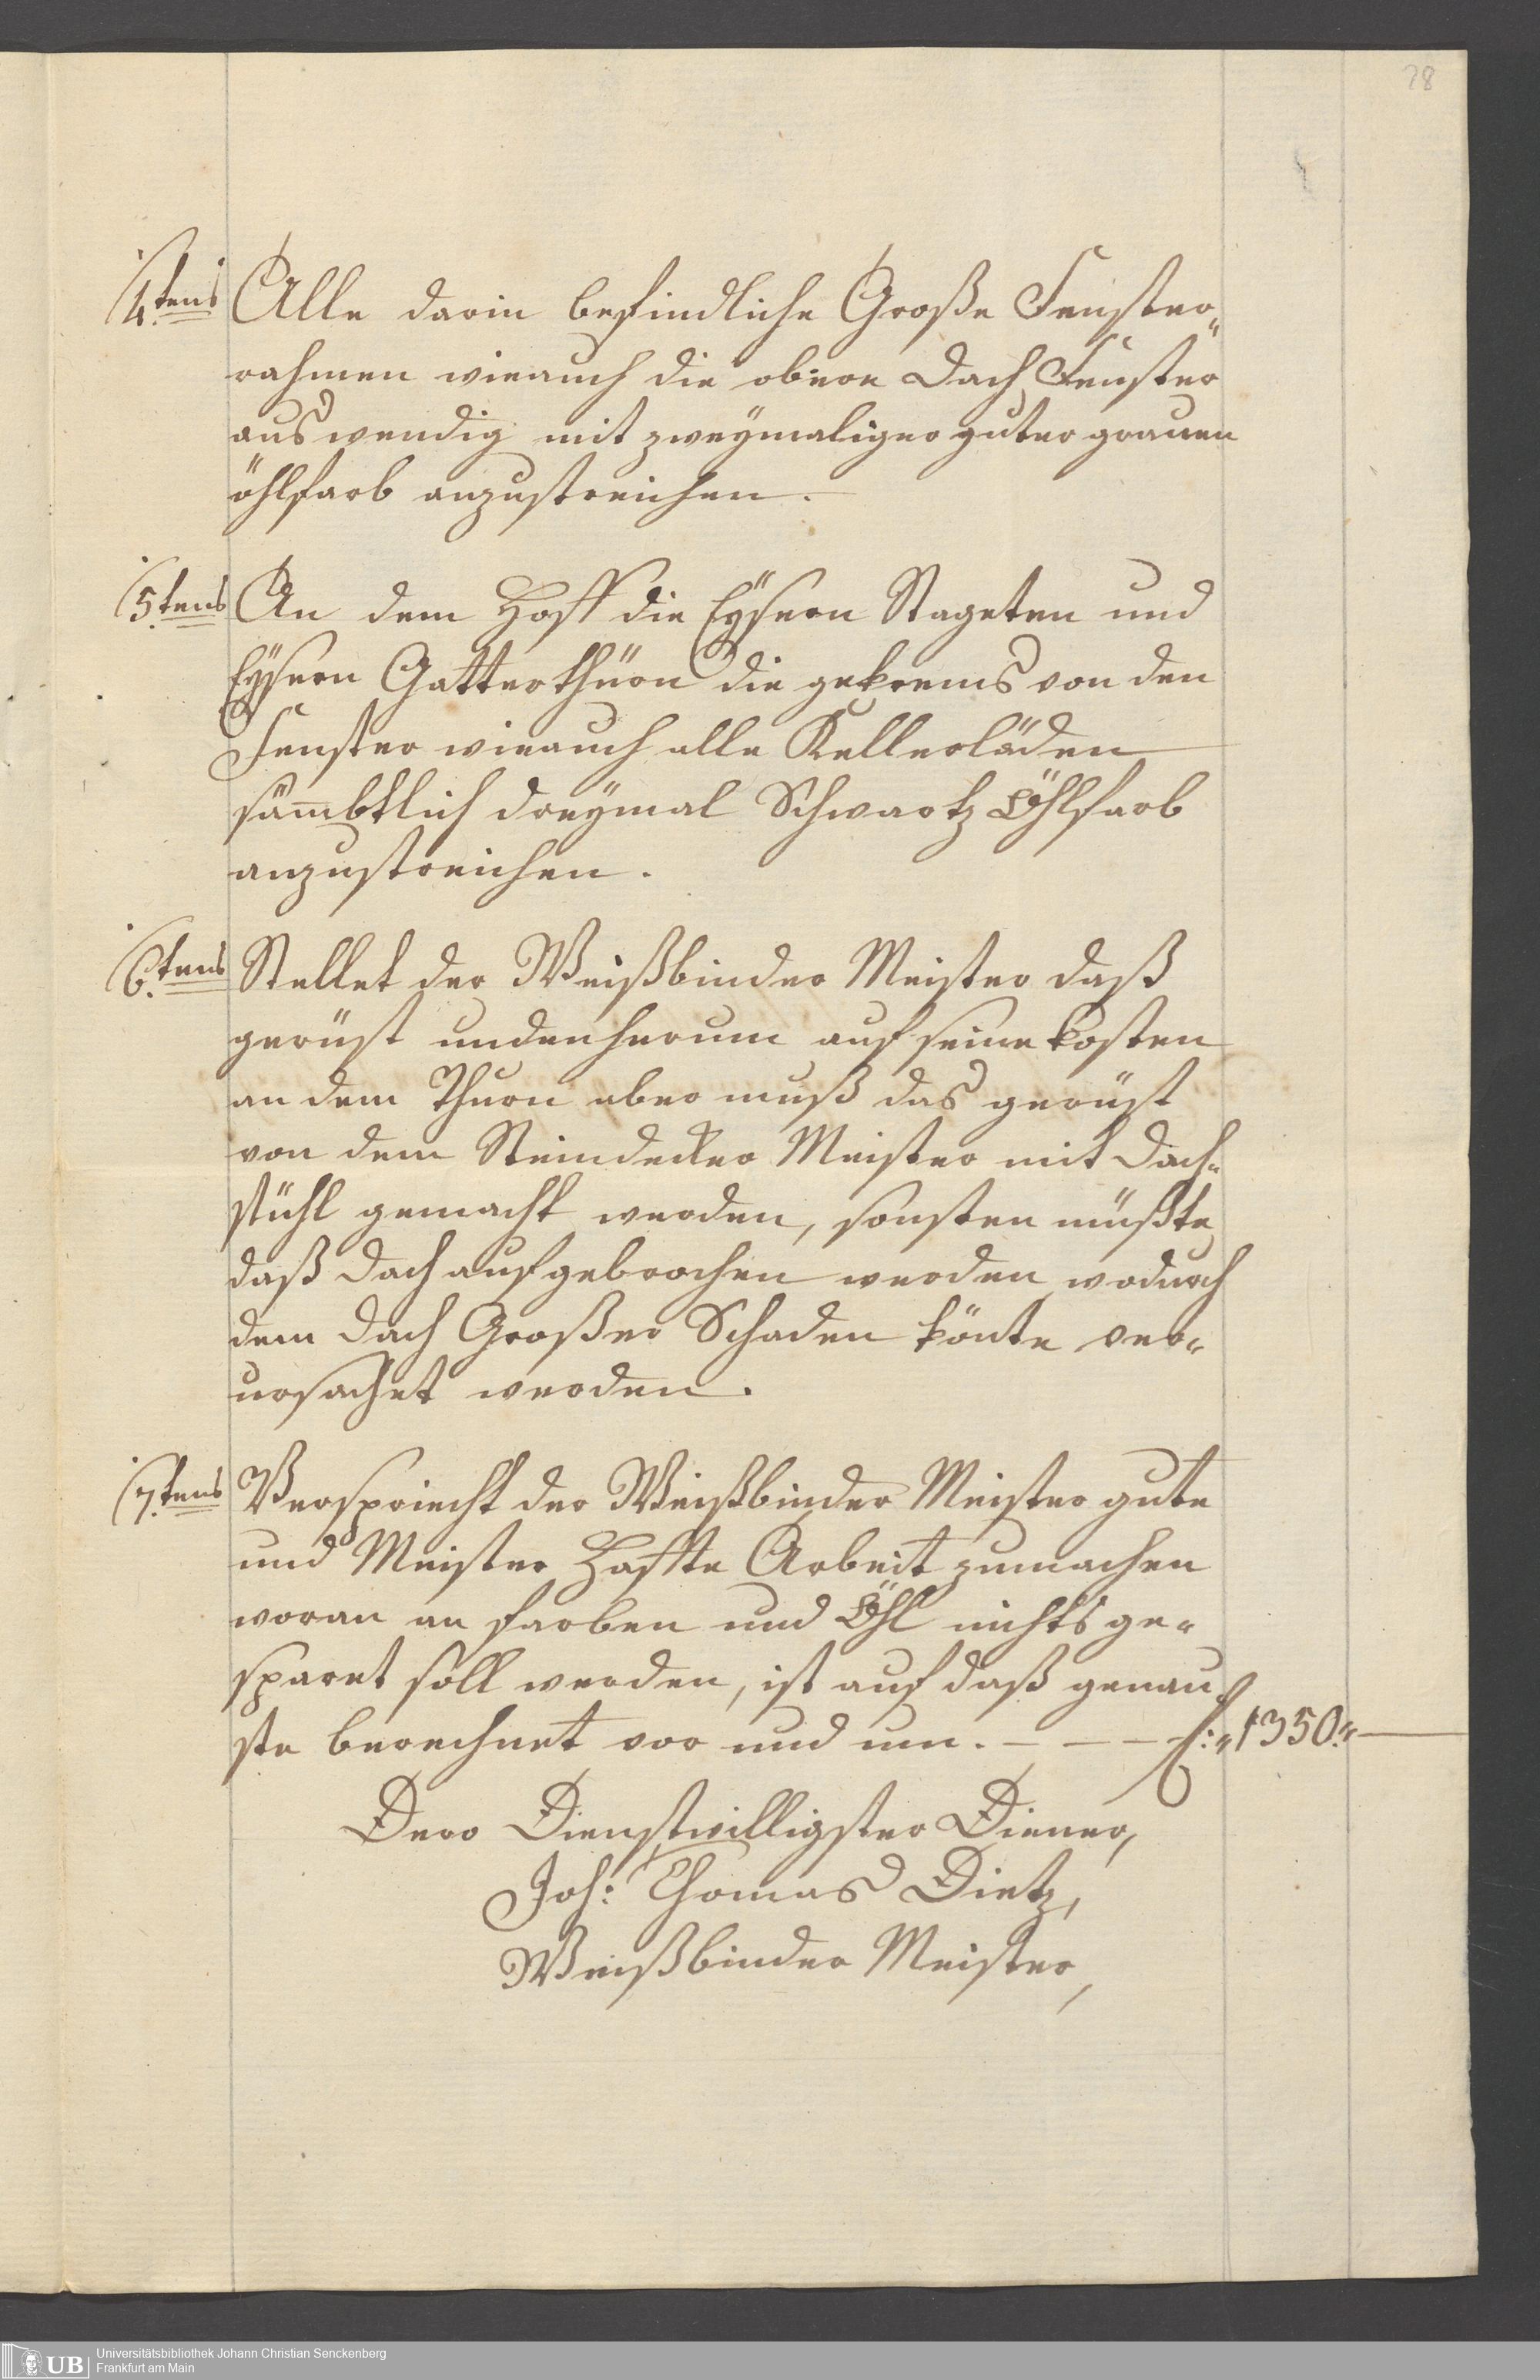 78
4.tens Alle darin befindliche Große Fenster„
rahmen wieauch die obere Dach Fenster
auswendig mit zweymaliger guter grauen
öhlfarb anzustreichen.
5.tens An dem Hoff die Eÿsern Stageten und
Eÿsern Gatterthürn die gekrems von den
Fenster wieauch alle Kellerläden
sämbtlich dreymal Schwartz Öhlfarb
anzustreichen.
6.tens Stellet der Weißbinder Meister daß
gerüst undenherum auf seine kosten
an dem Thurn aber muß das gerüst
von dem Steindecker Meister mit Dach„
stühl gemacht werden, sonsten müßte
daß Dach aufgebrochen werden wodurch
dem Dach Großer Schaden könte ver„
ursachet werden.
7.tens Verspriecht der Weißbinder Meister gute
und Meister Haffte Arbeit zumachen
woran an farben und Öhl nichts ge„
sparet soll werden, ist auf daß genau
ste berechnet vor und um. — — — f:„ 1350„ —
Dero Dienstwilligster Diener,
Joh: Thomas Dietz,
Weißbinder Meister,
UB Universitätsbibliothek Johann Christian Senckenberg
Frankfurt am Main